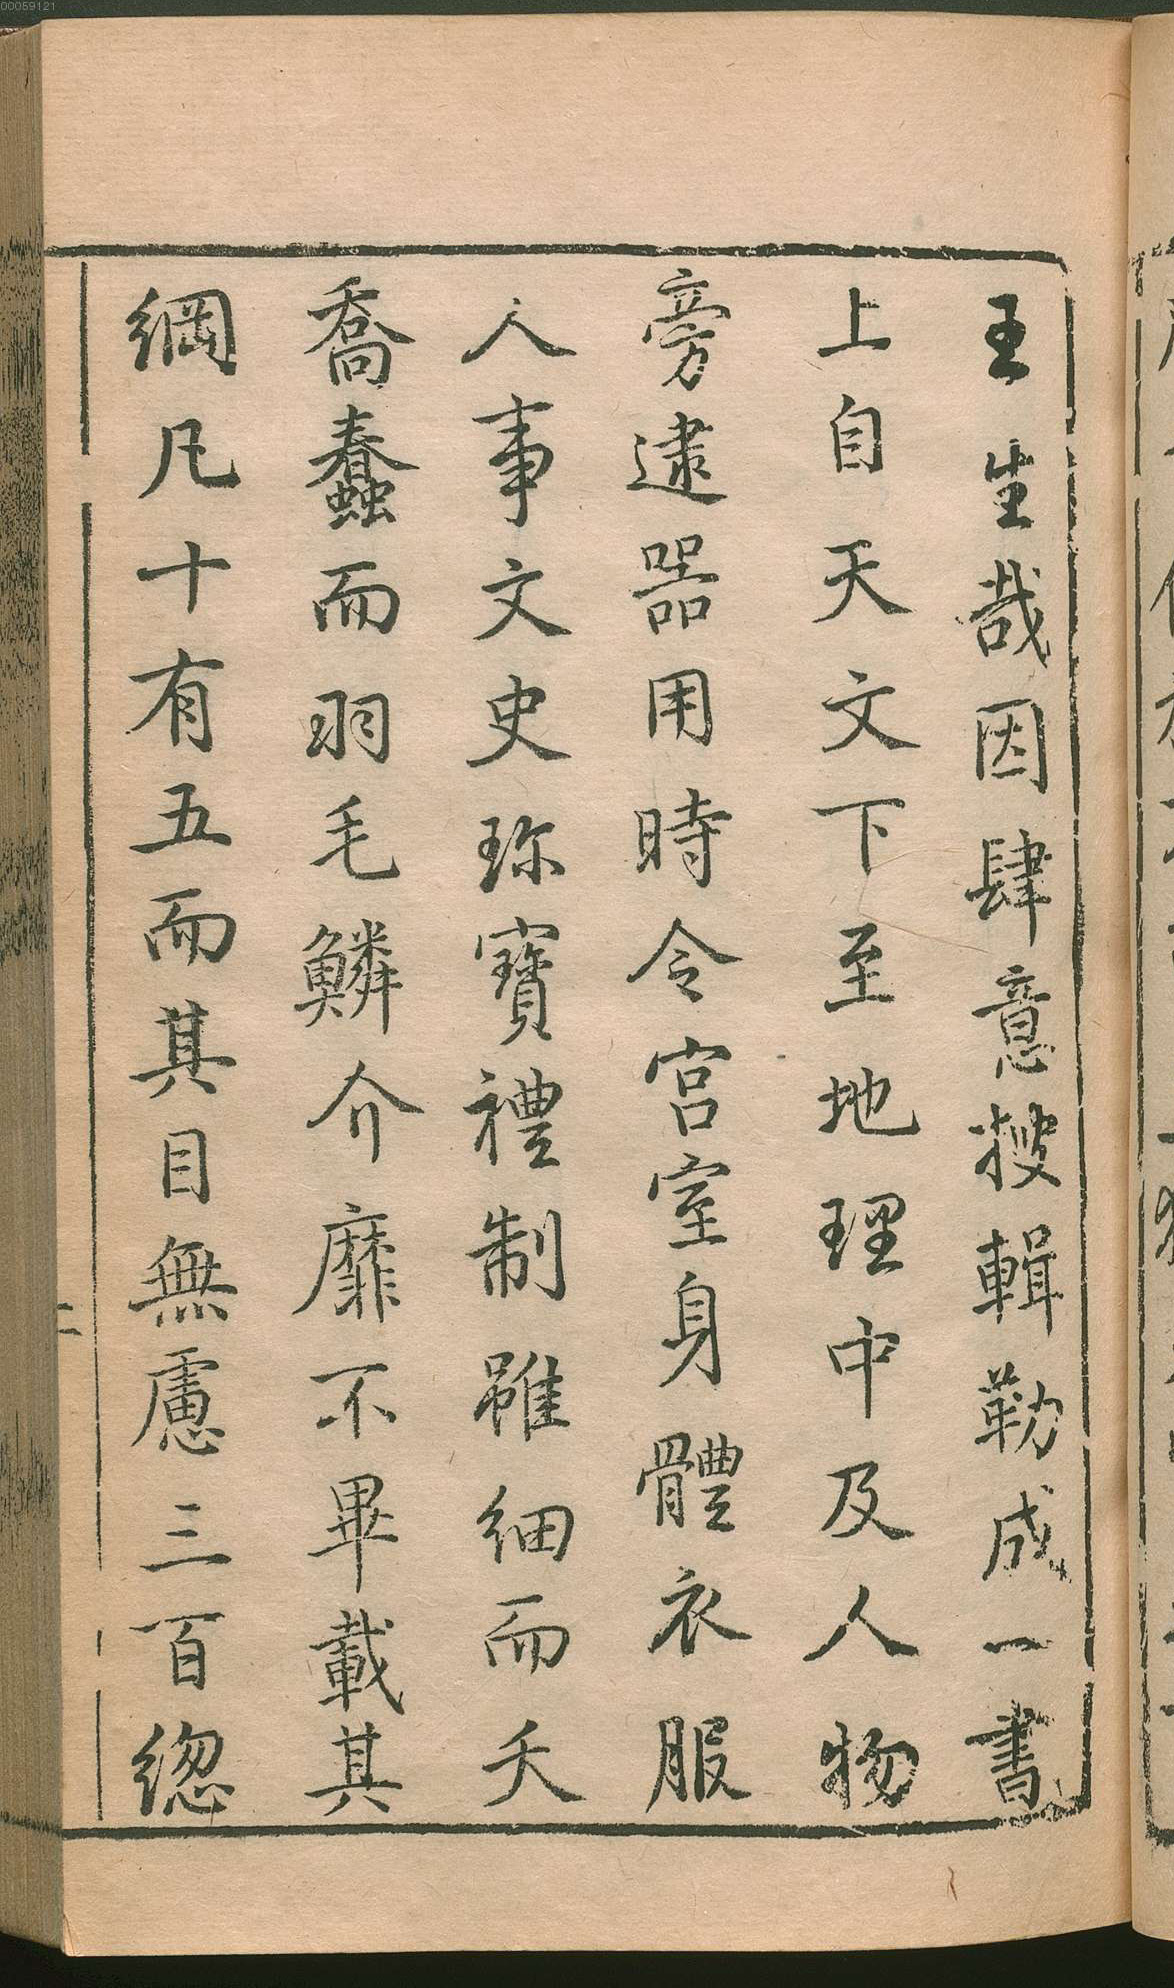 王生哉因肆意搜輯勒成一書
上自天文下至地理中及人物
旁逮器用時令宫室身體衣服
人事文史珎寳禮制雖細而夭
喬蠢而羽毛鱗介靡不畢載其
綱凡十有五而其目無慮三百緫
二
00059121